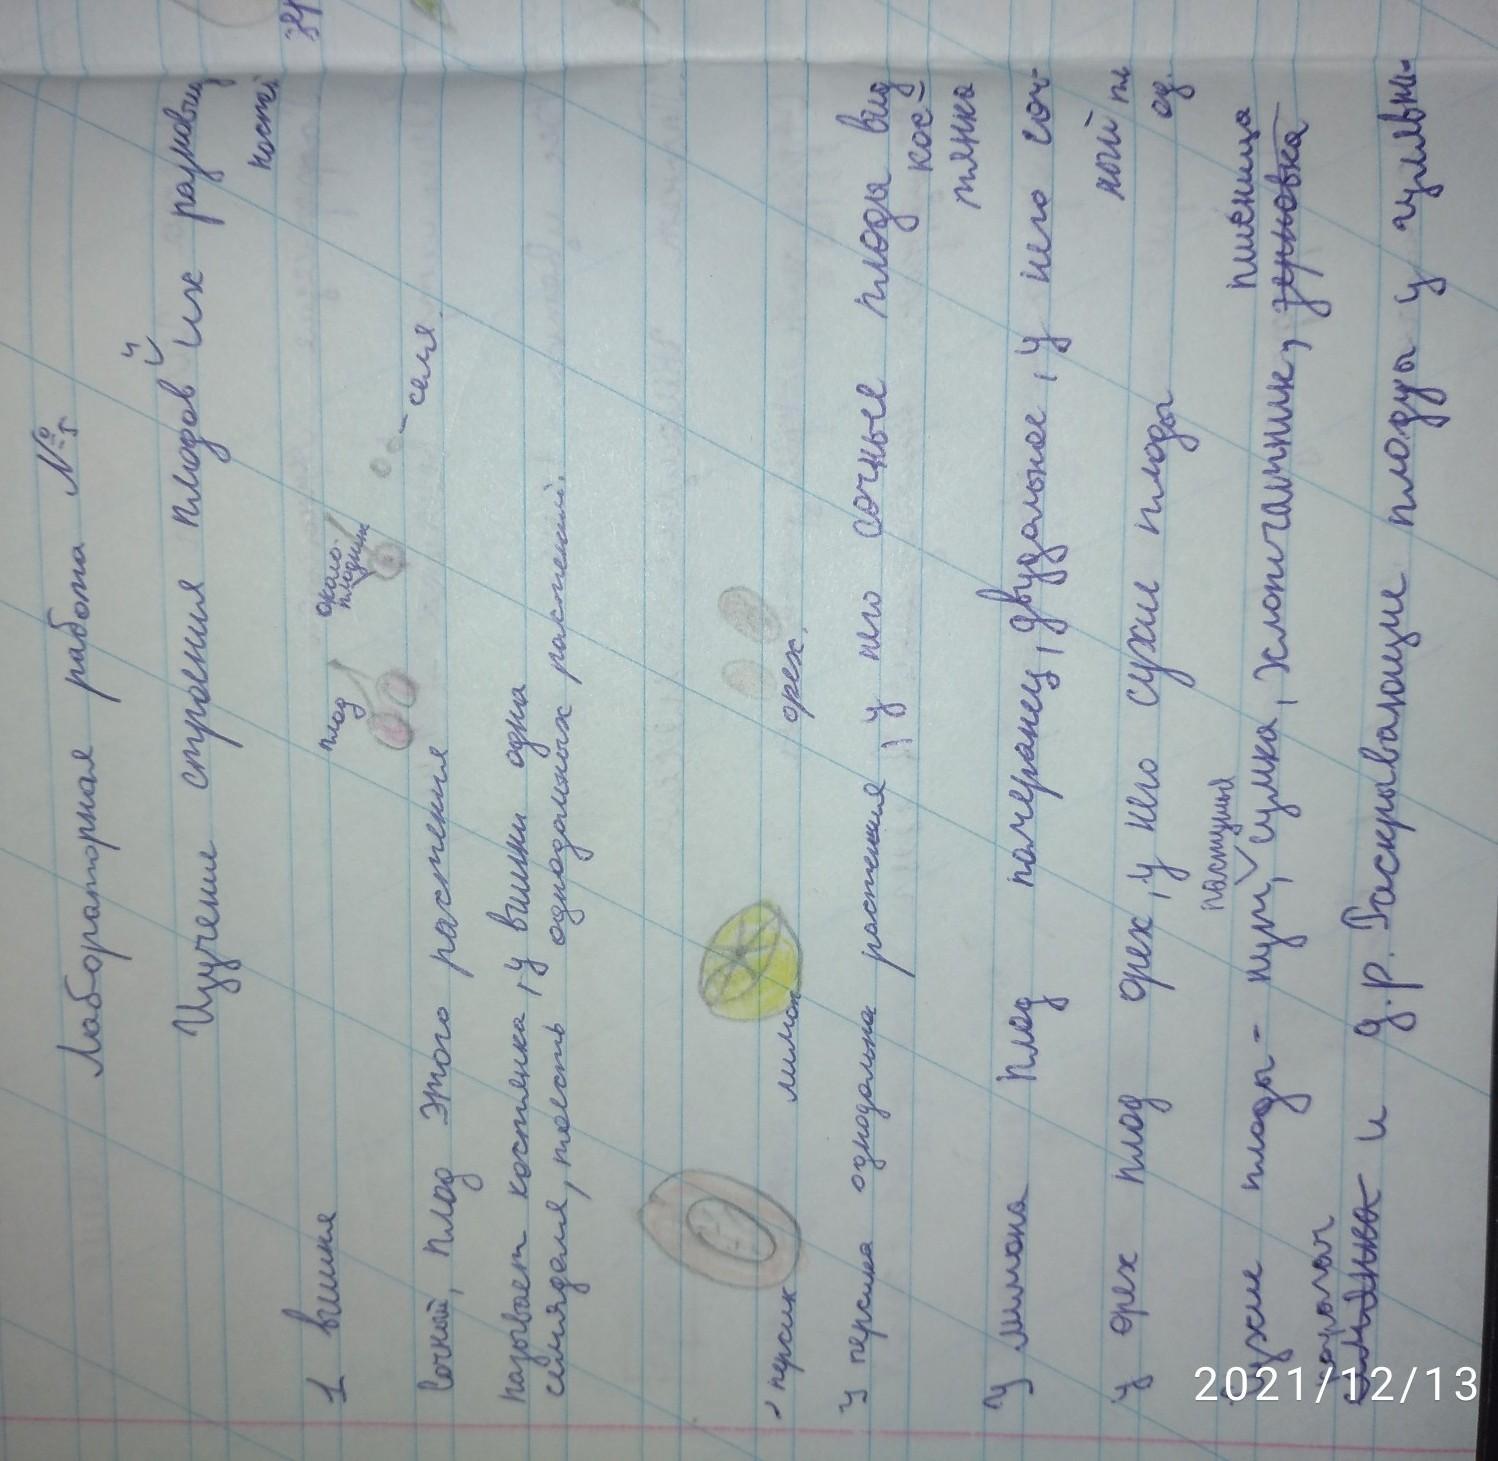 Лабораторная работа №5
Изучение строения плодов и их разновид
ностей
1 вишня
плод
около-
плодник
семя.
Сочный, плод этого растения
называет костянка, у вишни одна
семядоля, тоесть однодольных растений.
персик
лимон
орех.
У персика однодольна растения, у него сочные плоды вид
кос-
тянка
У лимона плод померанец, двудольное, у него соч-
ный пл
од.
У орех плод орех, у него сухие плоды
пшеница
сухие плоды - нут, пастушья сумка, хлопчатник, зерновка
горох
и д.р. Раскрывающие плоды у
2021/12/13